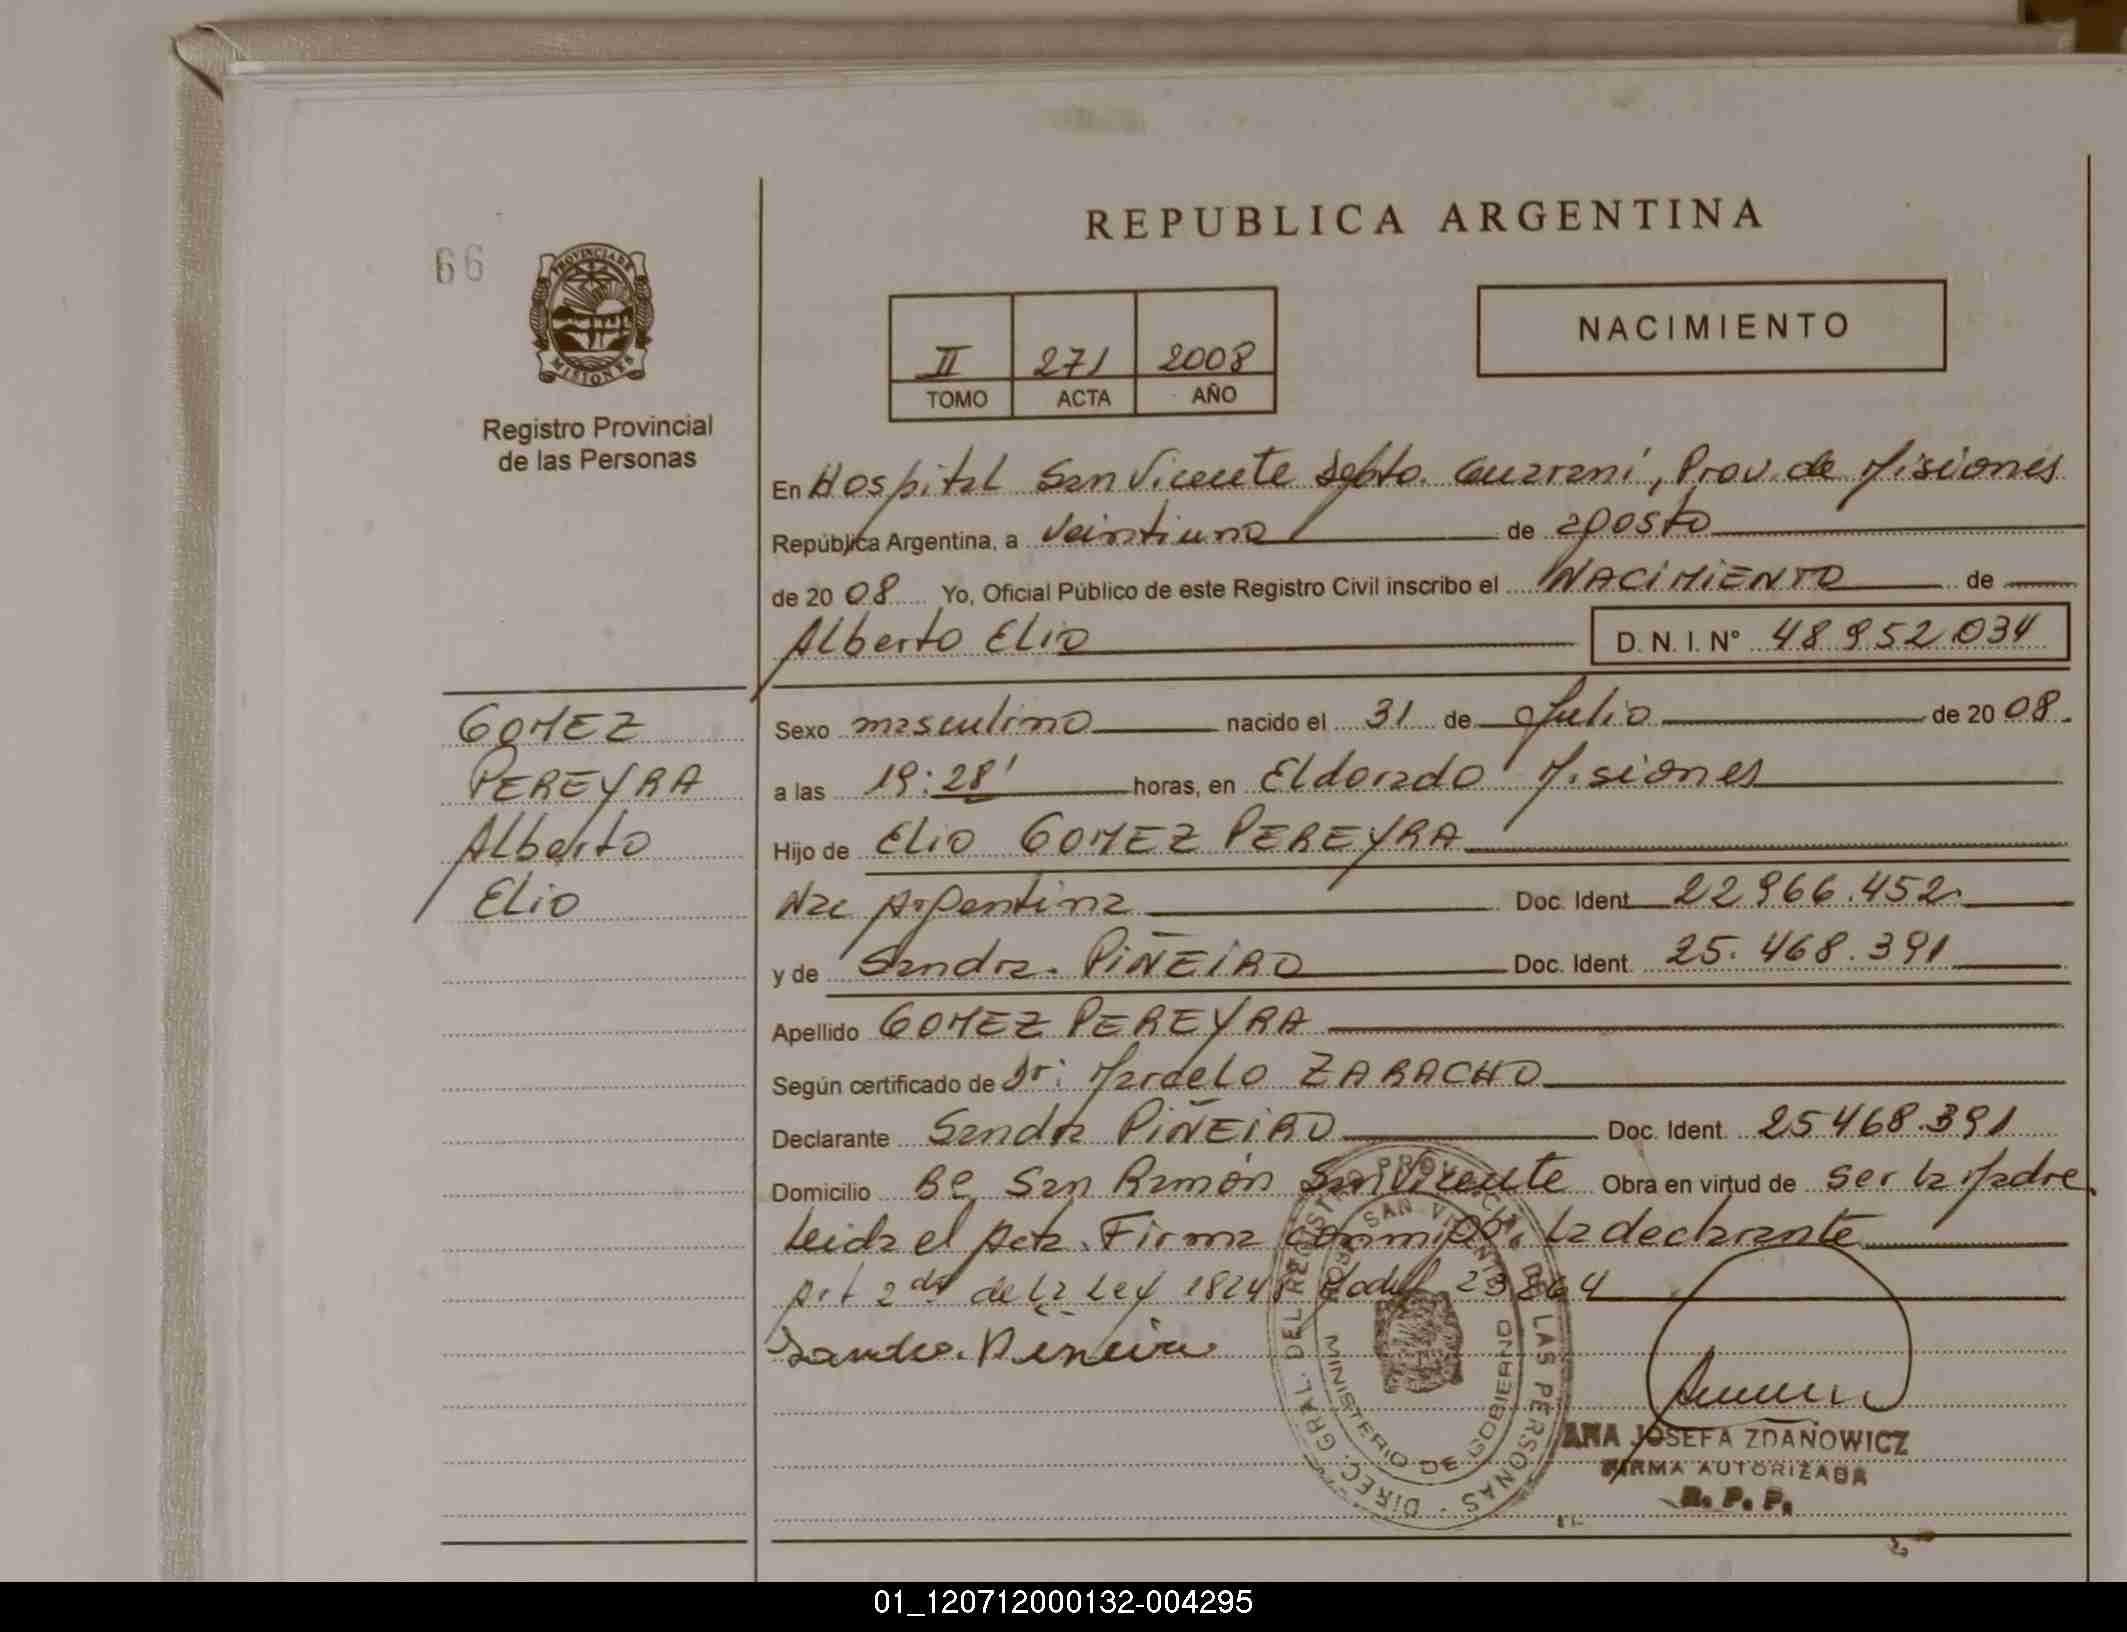 REPUBLICA ARGENTINA
66
PROVINCIA DE
MISIONES
Registro Provincial
de las Personas
II 271 2008
TOMO ACTA AÑO
NACIMIENTO
En Hospital San Vicente Dpto. Guaraní, Prov. de Misiones
República Argentina, a veintiuno de agosto
de 2008 Yo, Oficial Público de este Registro Civil inscribo el NACIMIENTO de
Alberto Elio D. N. I. N° 48 952 034
GOMEZ
PEREYRA
Alberto
Elio
Sexo masculino nacido el 31 de Julio de 2008.
a las 19:28' horas, en Eldorado Misiones
Hijo de Elio GOMEZ PEREYRA
Nac Argentina Doc. Ident. 22 966.452
y de Sandra PIÑEIRO Doc. Ident. 25.468.391
Apellido GOMEZ PEREYRA
Según certificado de Dr: Marcelo ZARACHO
Declarante Sandra PIÑEIRO Doc. Ident. 25 468.391
Domicilio Bº San Ramón San Vicente Obra en virtud de ser la Madre
Leida el Acta. Firma conmigo la declarante
Art 2da de la Ley 18248 23264
Sandra Piñeiro
DIREC. GRAL. DEL REGISTRO PROVINCIAL DE LAS PERSONAS
SAN VICENTE
MINISTERIO DE GOBIERNO
ANA JOSEFA ZDANOWICZ
FIRMA AUTORIZADA
R. P. P.
01_120712000132-004295